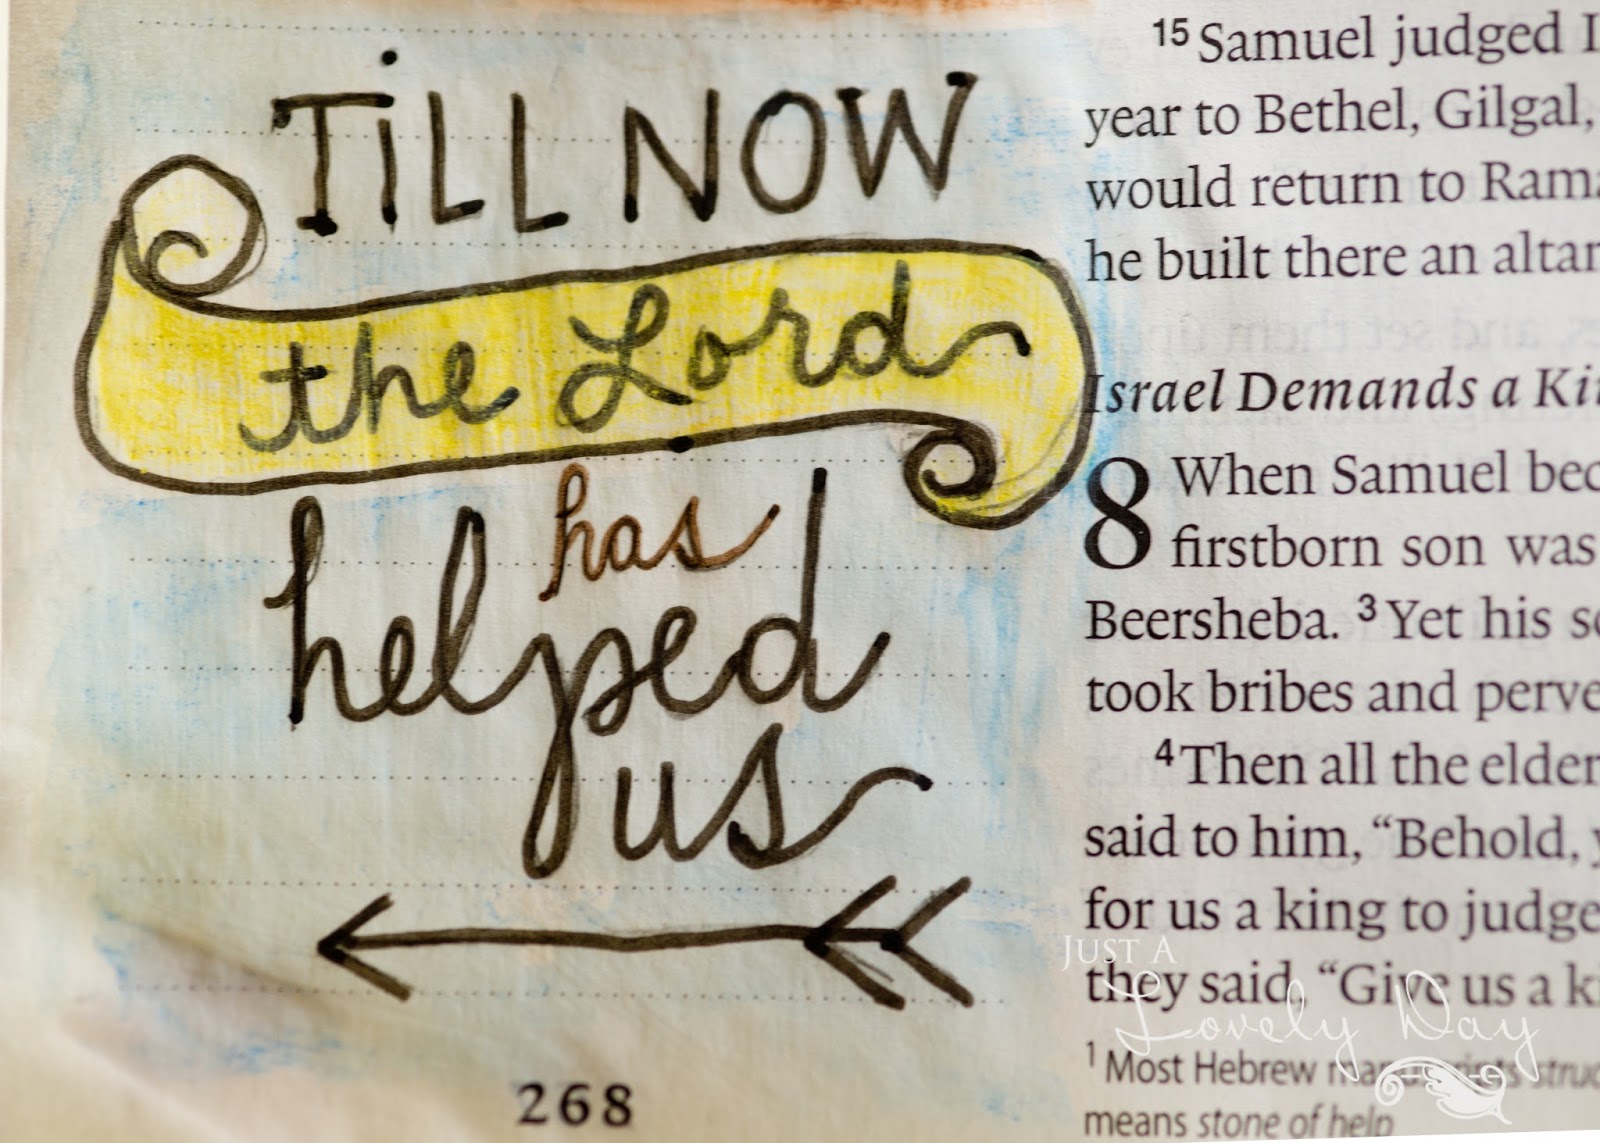 TiLL NOW
the Lord
has
helped
us
268
15 Samuel judged I
year to Bethel, Gilgal,
would return to Rama
he built there an altar
Israel Demands a Ki
8 When Samuel bec
firstborn son was
Beersheba. 3 Yet his so
took bribes and perve
4 Then all the elder
said to him, “Behold, y
for us a king to judge
they said, “Give us a ki
1 Most Hebrew manuscripts struc
means stone of help
JUST A
Lovely Day